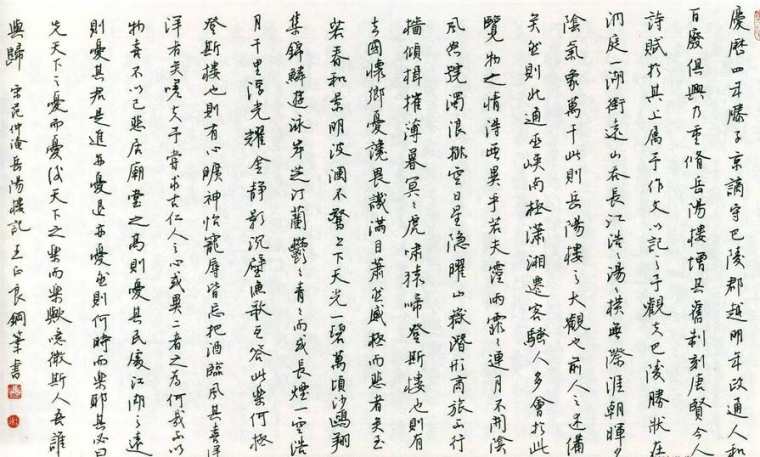 慶曆四年滕子京謫守巴陵郡越明年政通人和
百廢俱興乃重脩岳陽樓增其舊制刻唐賢今人
詩賦於其上屬予作文以記之予觀夫巴陵勝狀在
洞庭一湖銜遠山吞長江浩〻湯橫無際涯朝暉夕
陰氣象萬千此則岳陽樓之大觀也前人之述備
矣然則此通巫峽南極瀟湘遷客騷人多會於此
覽物之情得無異乎若夫霪雨霏〻連月不開陰
風怒號濁浪排空日星隱曜山嶽潛形商旅不行
檣傾楫摧薄暮冥〻虎嘯猿啼登斯樓也則有
去國懷鄉憂讒畏譏滿目蕭然感極而悲者矣至
若春和景明波瀾不驚上下天光一碧萬頃沙鷗翔
集錦鱗游泳岸芷汀蘭鬱〻青〻而或長煙一空浩
月千里浮光耀金静影沉璧漁歌互答此樂何極
登斯樓也則有心曠神怡寵辱皆忘把酒臨風其喜洋
洋者矣嗟夫予嘗求古仁人之心或異二者之為何哉不以
物喜不以己悲居廟堂之高則憂其民處江湖之遠
則憂其君是進亦憂退亦憂然則何時而樂耶其必曰
先天下之憂而憂後天下之樂而樂歟噫微斯人吾誰
與歸 宋范仲淹岳陽樓記 王正良鋼筆書